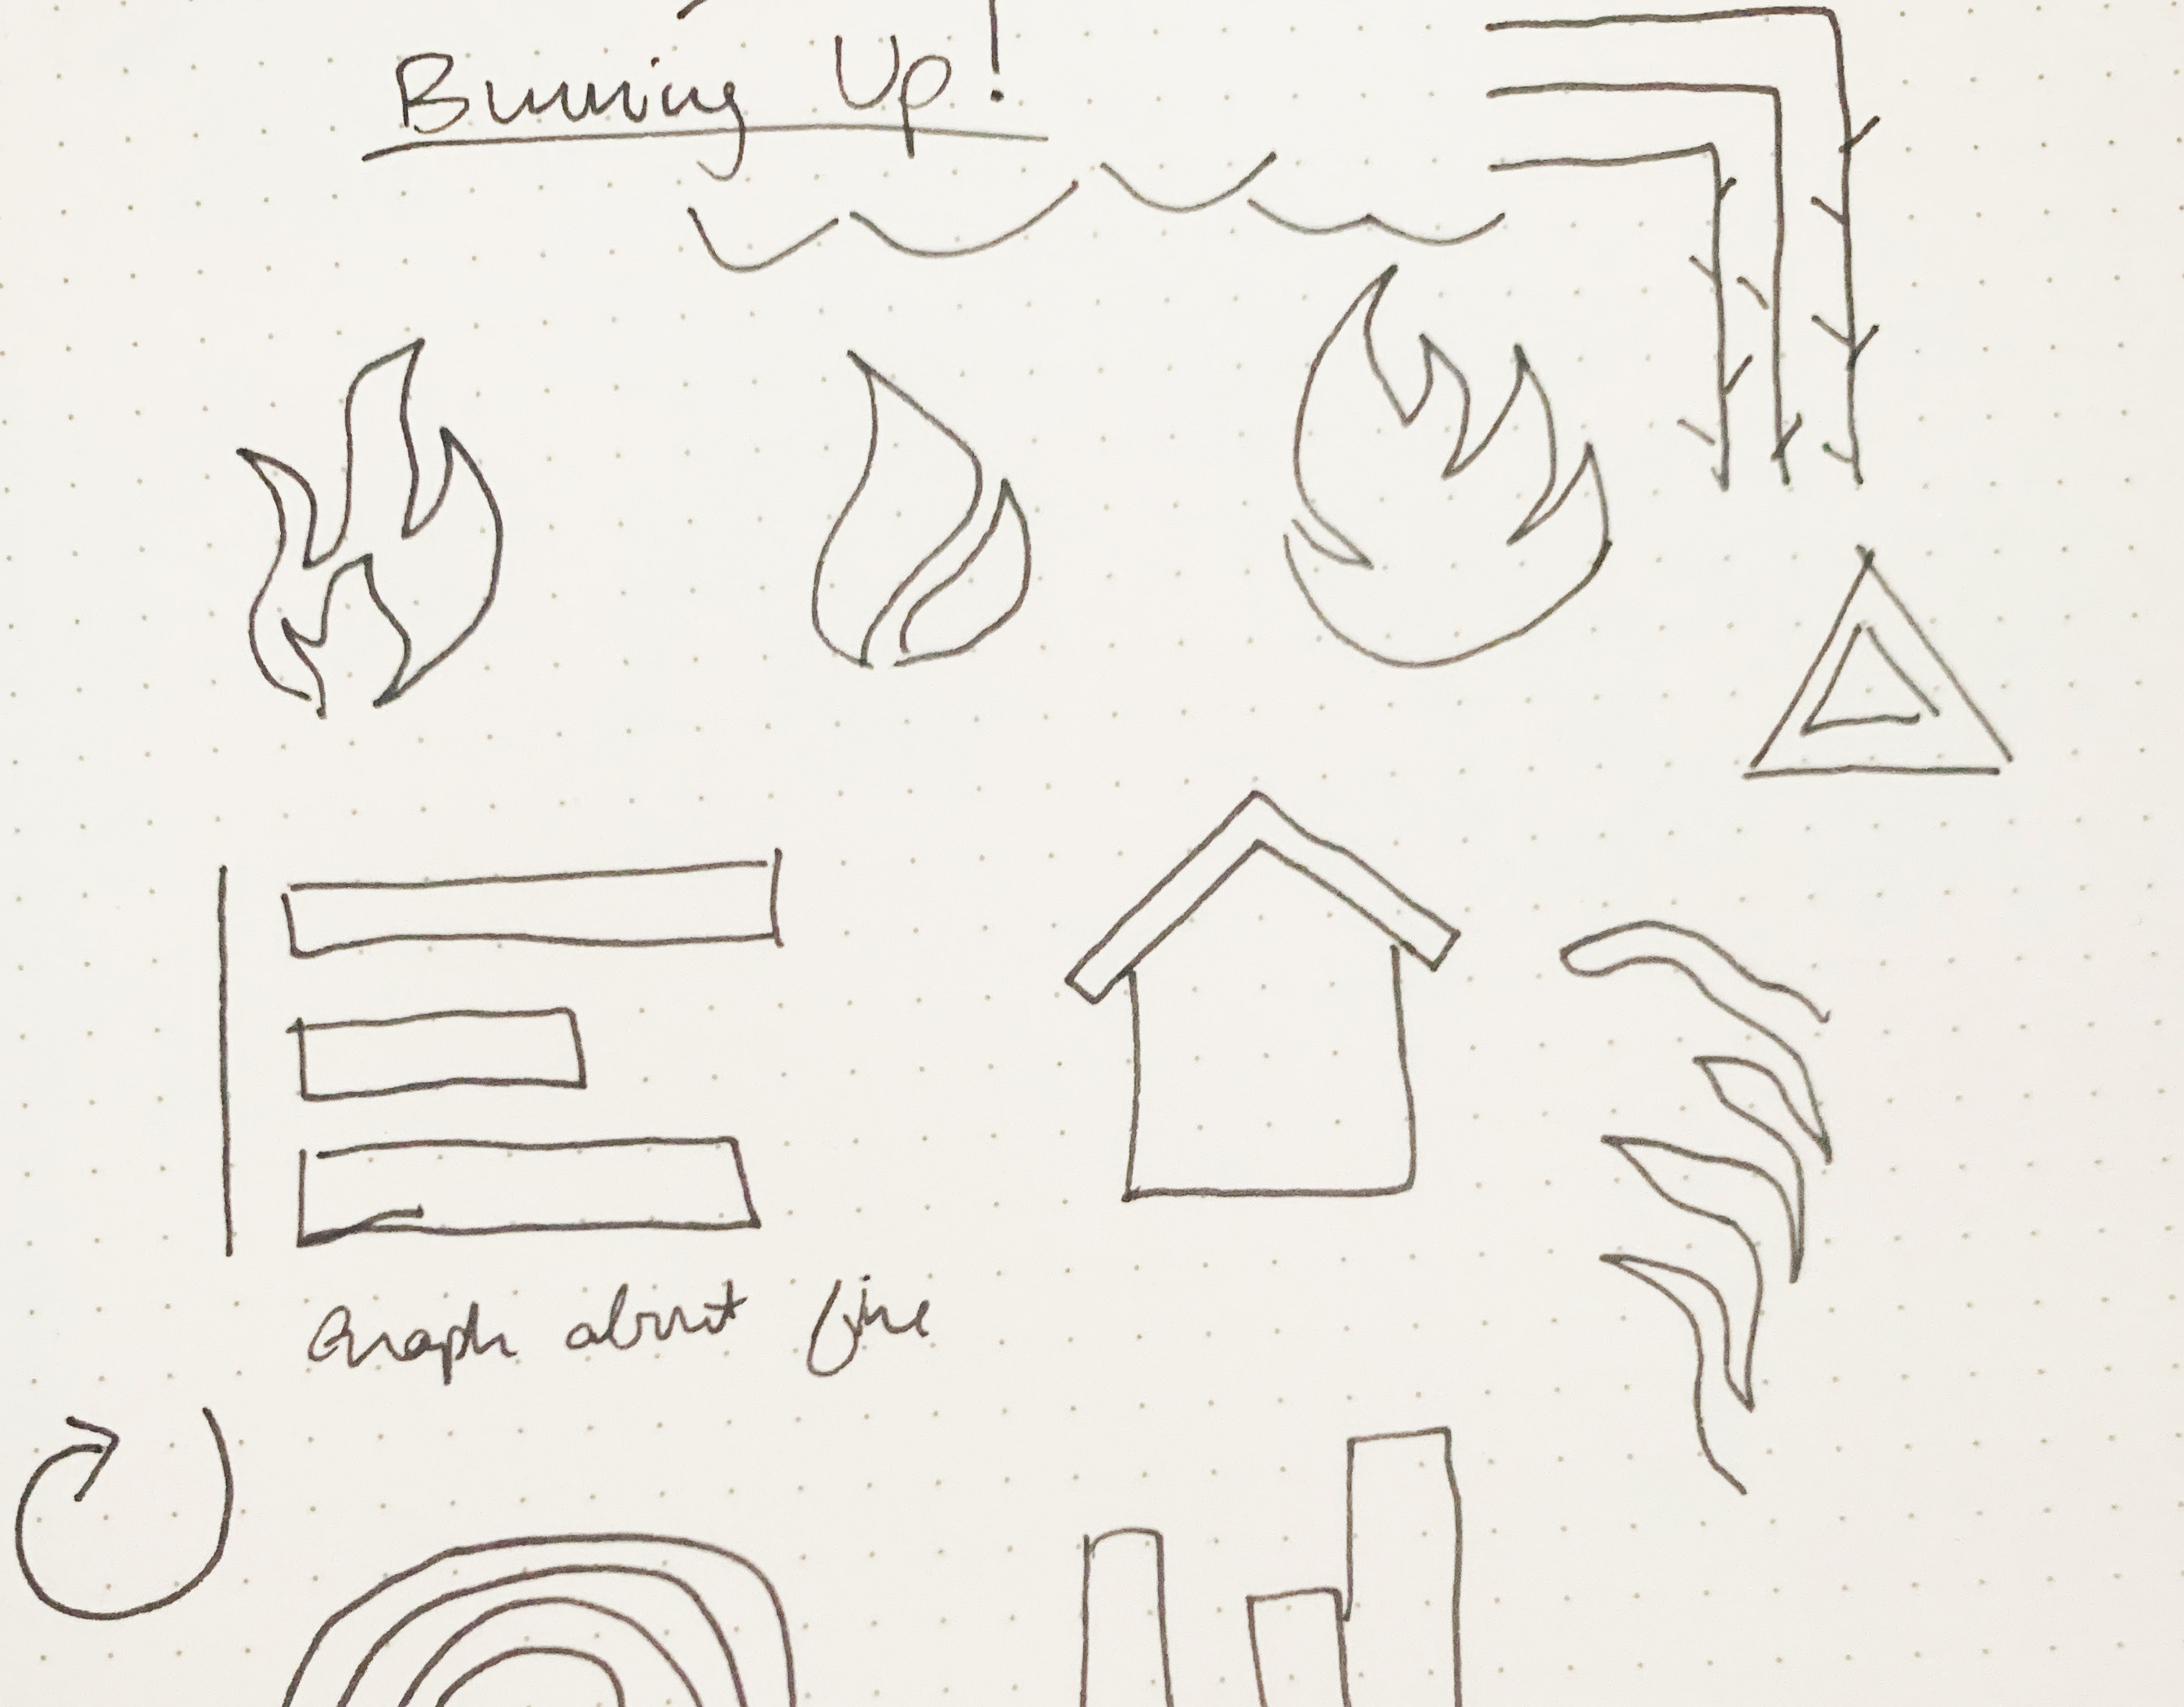 Burning Up!
Graph about fire